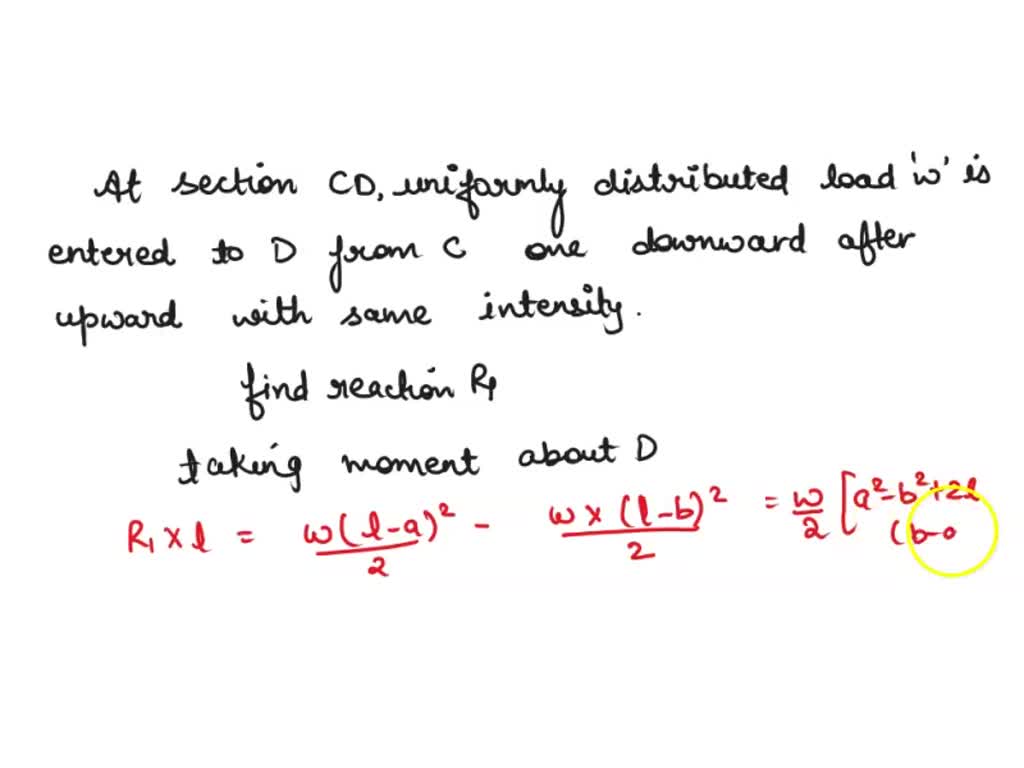 At section CD, uniformly distributed load 'w' is
entered to D from C one downward after
upward with same intensity.
find reaction R₁
taking moment about D
R₁ × l = w(l-a)²/2 - w×(l-b)²/2 = w/2 [a²-b²+2l
(b-